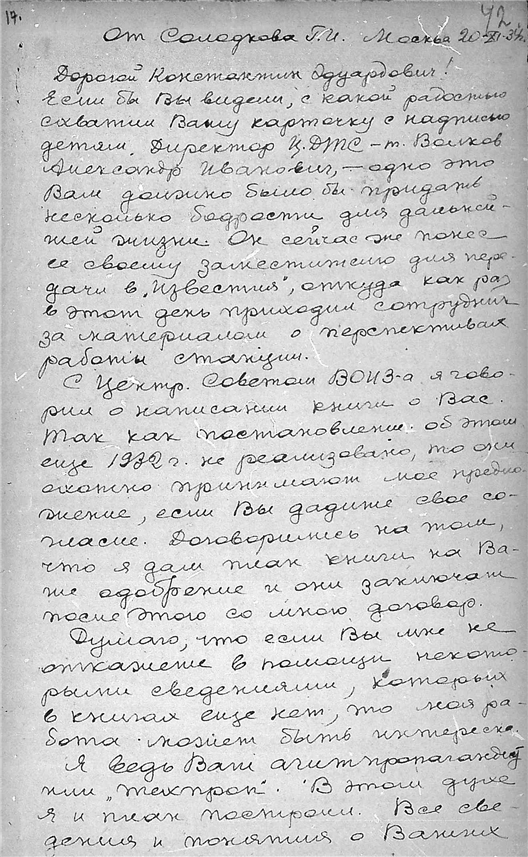 17.
72
От Солодкова Г.И. Москва 20-XI-34г.
Дорогой Константин Эдуардович!
Если бы Вы видели, с какой радостью
схватил Вашу карточку с надписью
детям. Директор Ц.ДТС – т. Волков
Александр Иванович, – одно это
Вам должно было бы придать
несколько бодрости для дальней-
шей жизни. Он сейчас же понес
ее своему заместителю для пере-
дачи в „Известия", откуда как раз
в этот день приходил сотрудник
за материалом о перспективах
работы станции.
С Центр. Советом ВОИЗ-а я гово-
рил о написании книги о Вас.
Так как постановление об этом
еще 1932 г. не реализовано, то они
охотно принимают мое предло-
жение, если Вы дадите свое со-
гласие. Договорились на том,
что я дам план книги на Ва-
ше одобрение и они заключат
после этого со мною договор.
Думаю, что если Вы мне не
откажете в помощи некото-
рыми сведениями, которых
в книгах еще нет, то моя ра-
бота может быть интересна.
Я ведь Ваш агитпропагандист
или „техпроп". В этом духе
я и план построил. Все све-
дения и понятия о Ваших